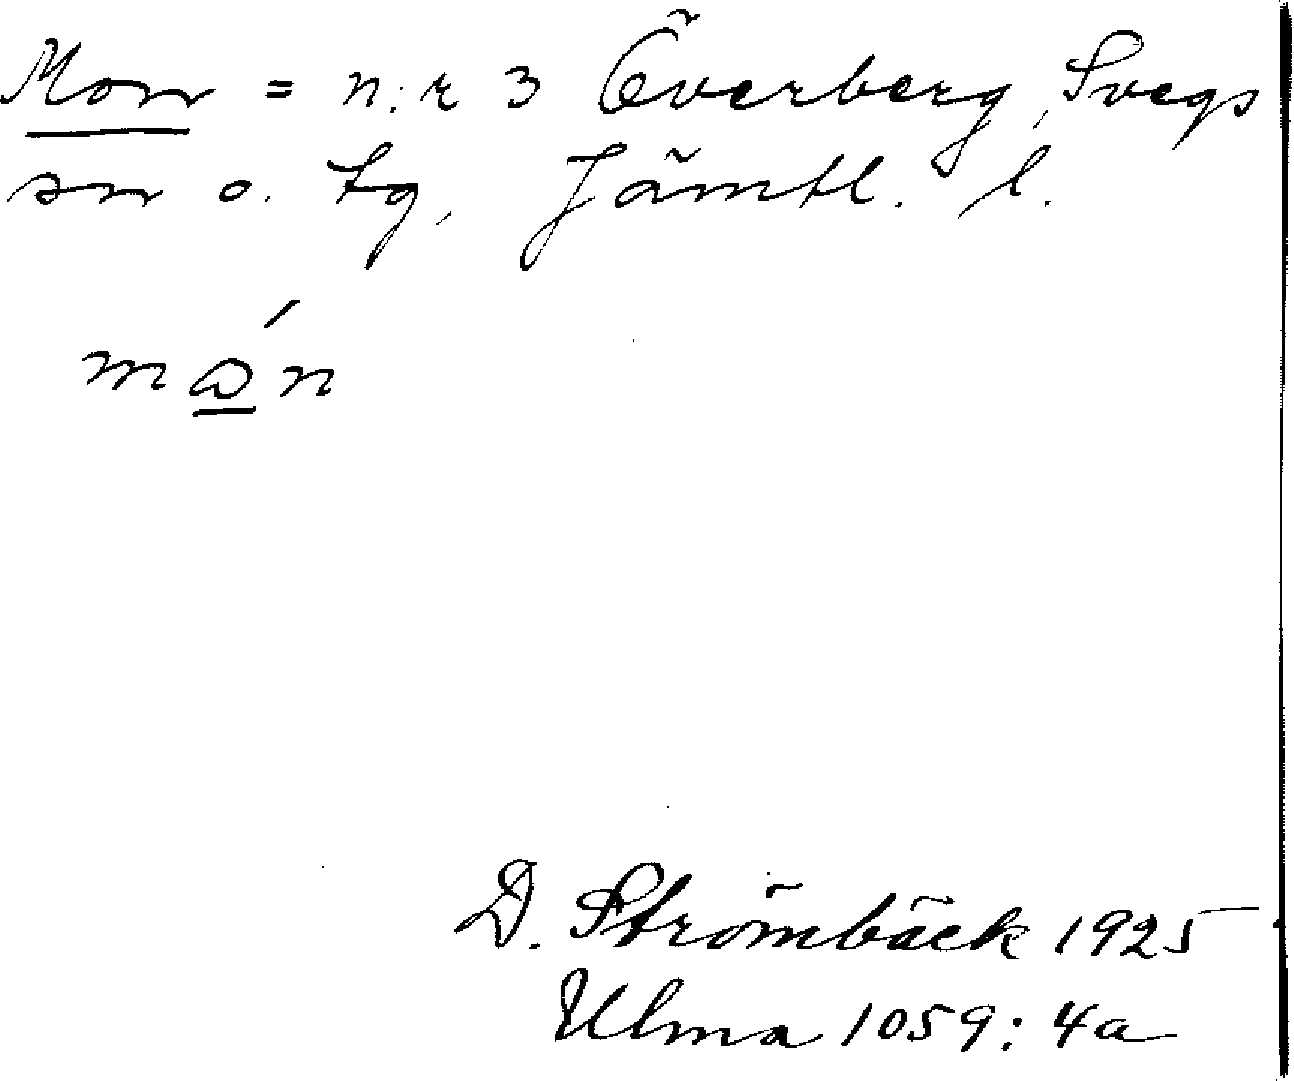 Mon = n:r 3 Överberg, Svegs
sn o. tg, Jämtl. l.
mån
D. Strömbäck 1925
Ulma 1059: 4a